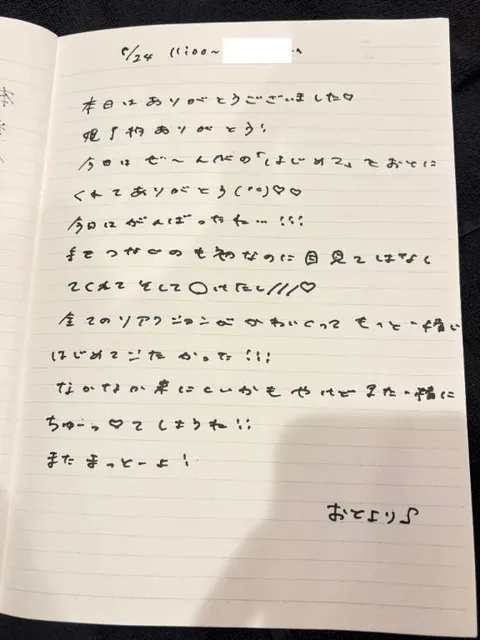 5/24 11:00~
本日はありがとうございました♡
ありがとう!
今日はぜ~んぶの「はじめて」をおとに
くれてありがとう(°°)♡♡
今日はがんばったね…!!!
手をつなぐのも初なのに目見てはなし
てくれてそして〇けたし///♡
全てのリアクションがかわいくってもっと一緒に
はじめてしたかった!!!
なかなか来にくいかもやけどまた一緒に
ちゅーっ♡てしようね!!
またまっとーよ!
おとより♪